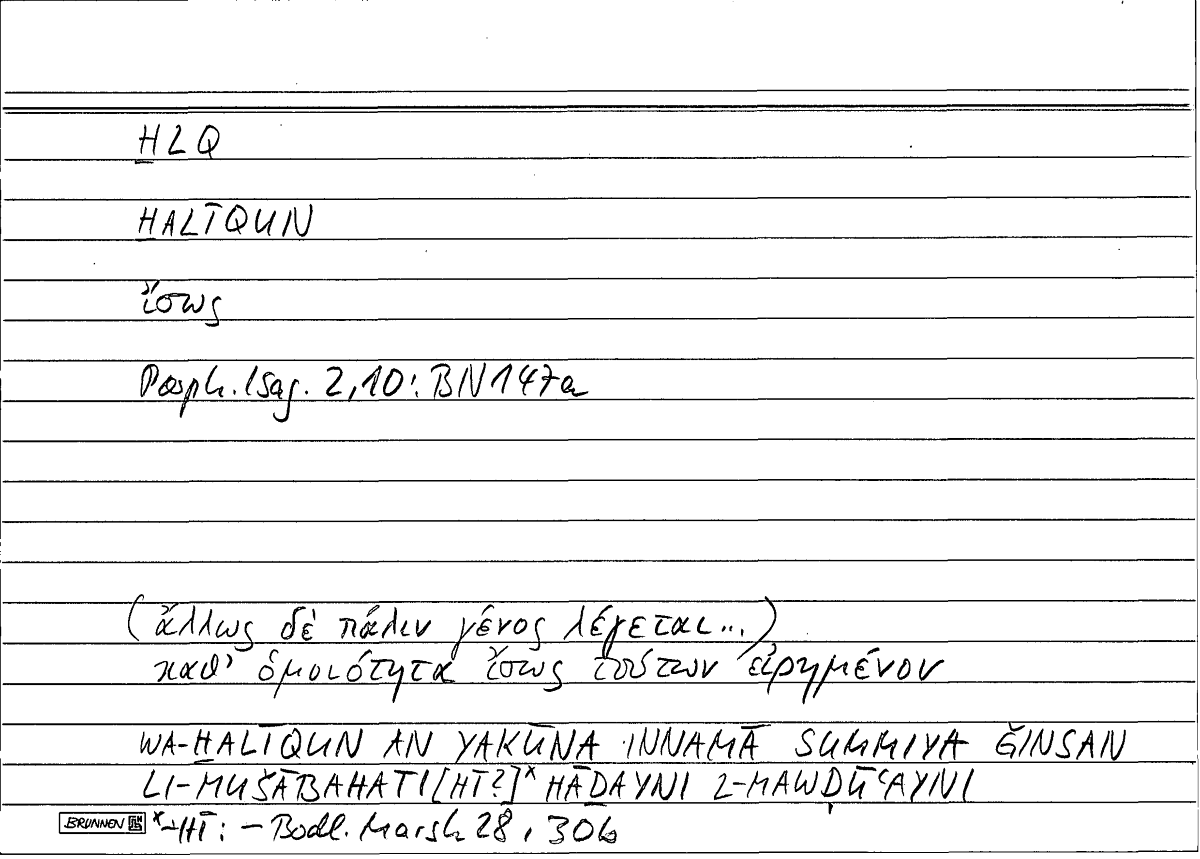 ḪLQ
ḪALĪQUN
ἴσως
Porph. Isag. 2,10: BN 147a
(ἄλλως δὲ πάλιν γένος λέγεται...)
καθ' ὁμοιότητα ἴσως τούτων εἰρημένον
WA-ḪALĪQUN AN YAKŪNA INNAMĀ SUMMIYA ǦINSAN
LI-MUŠĀBAHATI[HĪ?]* HĀḎAYNI L-MAWḌŪʿAYNI
BRUNNEN *–HĪ: – Bodl. Marsh 28, 30b